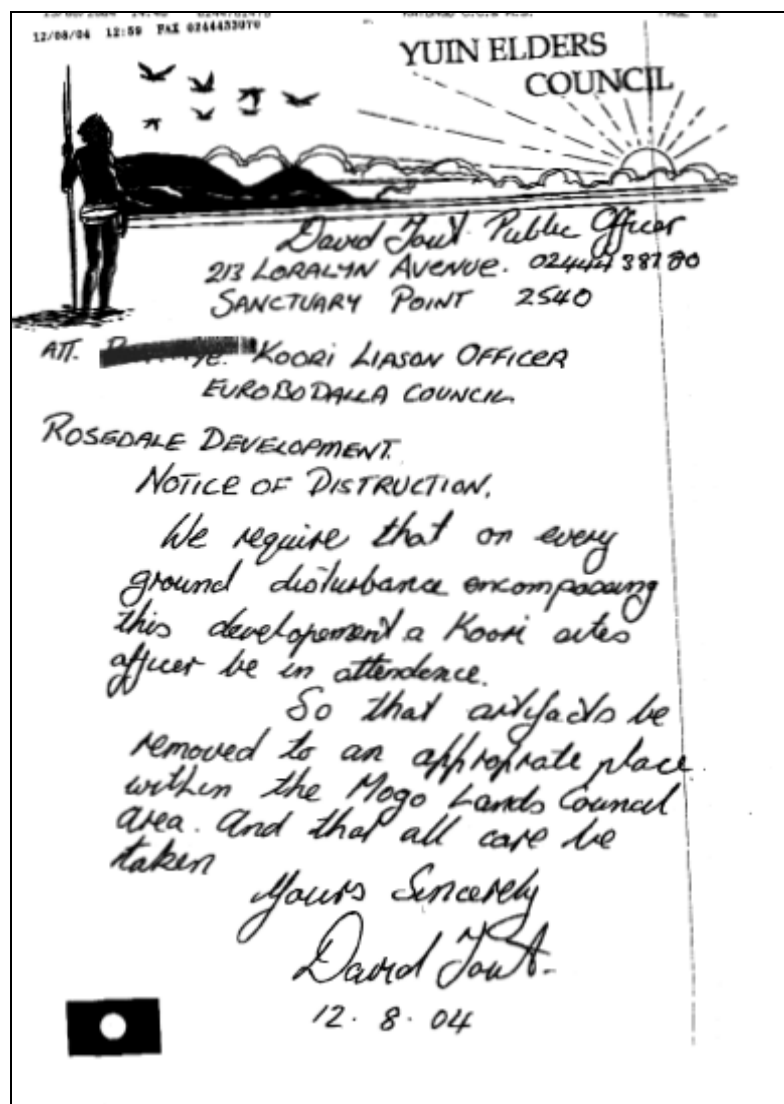 12/08/04 12:59 FAX 0244433070
YUIN ELDERS
COUNCIL
David Public Officer
213 LORALYN AVENUE. 0244438780
SANCTUARY POINT 2540
ATT. KOORI LIASON OFFICER
EUROBODALLA COUNCIL
ROSEDALE DEVELOPMENT.
NOTICE OF DISTRUCTION.
We require that on every
ground disturbance encompassing
this developement a Koori sites
officer be in attendence.
So that artifacts be
removed to an appropriate place
within the Mogo Lands Council
area. And that all care be
taken
Yours Sincerely
David
12.8.04